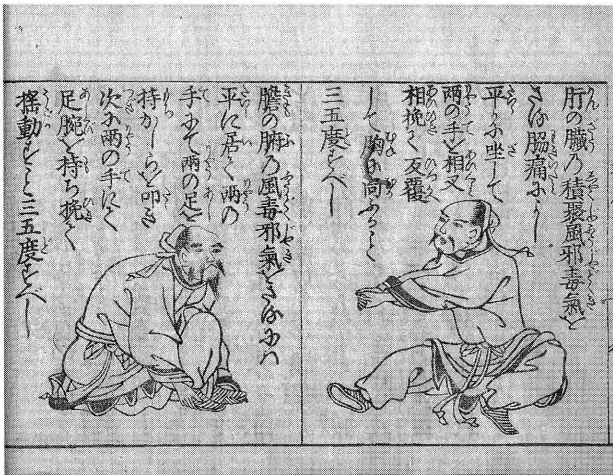 肝の臓乃積聚風邪毒氣を
さる脇痛によし
平かに坐して
両の手を相叉
相挽く反覆
して胸に向ふるく
三五度すべし
膽の腑乃風毒邪氣をさるには
平に居て両の
手にて両の足を
持かしらを叩き
次に両の手にて
足腕を持ち挽て
揺動すこと三五度すべし